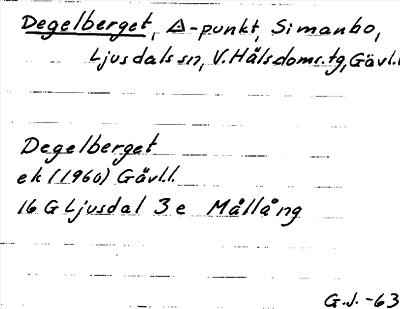 Degelberget, △-punkt, Simanbo,
Ljusdals sn, V. Hälsdoms.tg, Gävl.l
Degelberget
ek (1960) Gävl.l.
16 G Ljusdal 3 e Mållång
G.J. -63